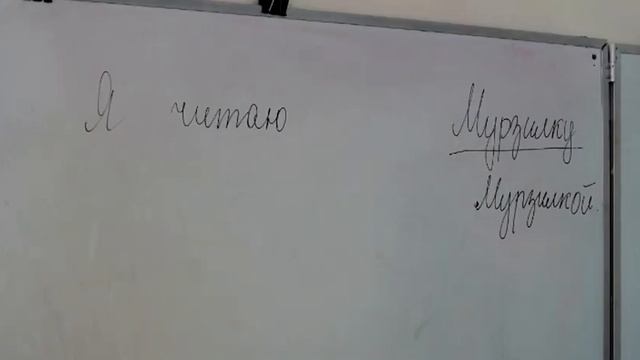 Я читаю Мурзилку
Мурзилкой.